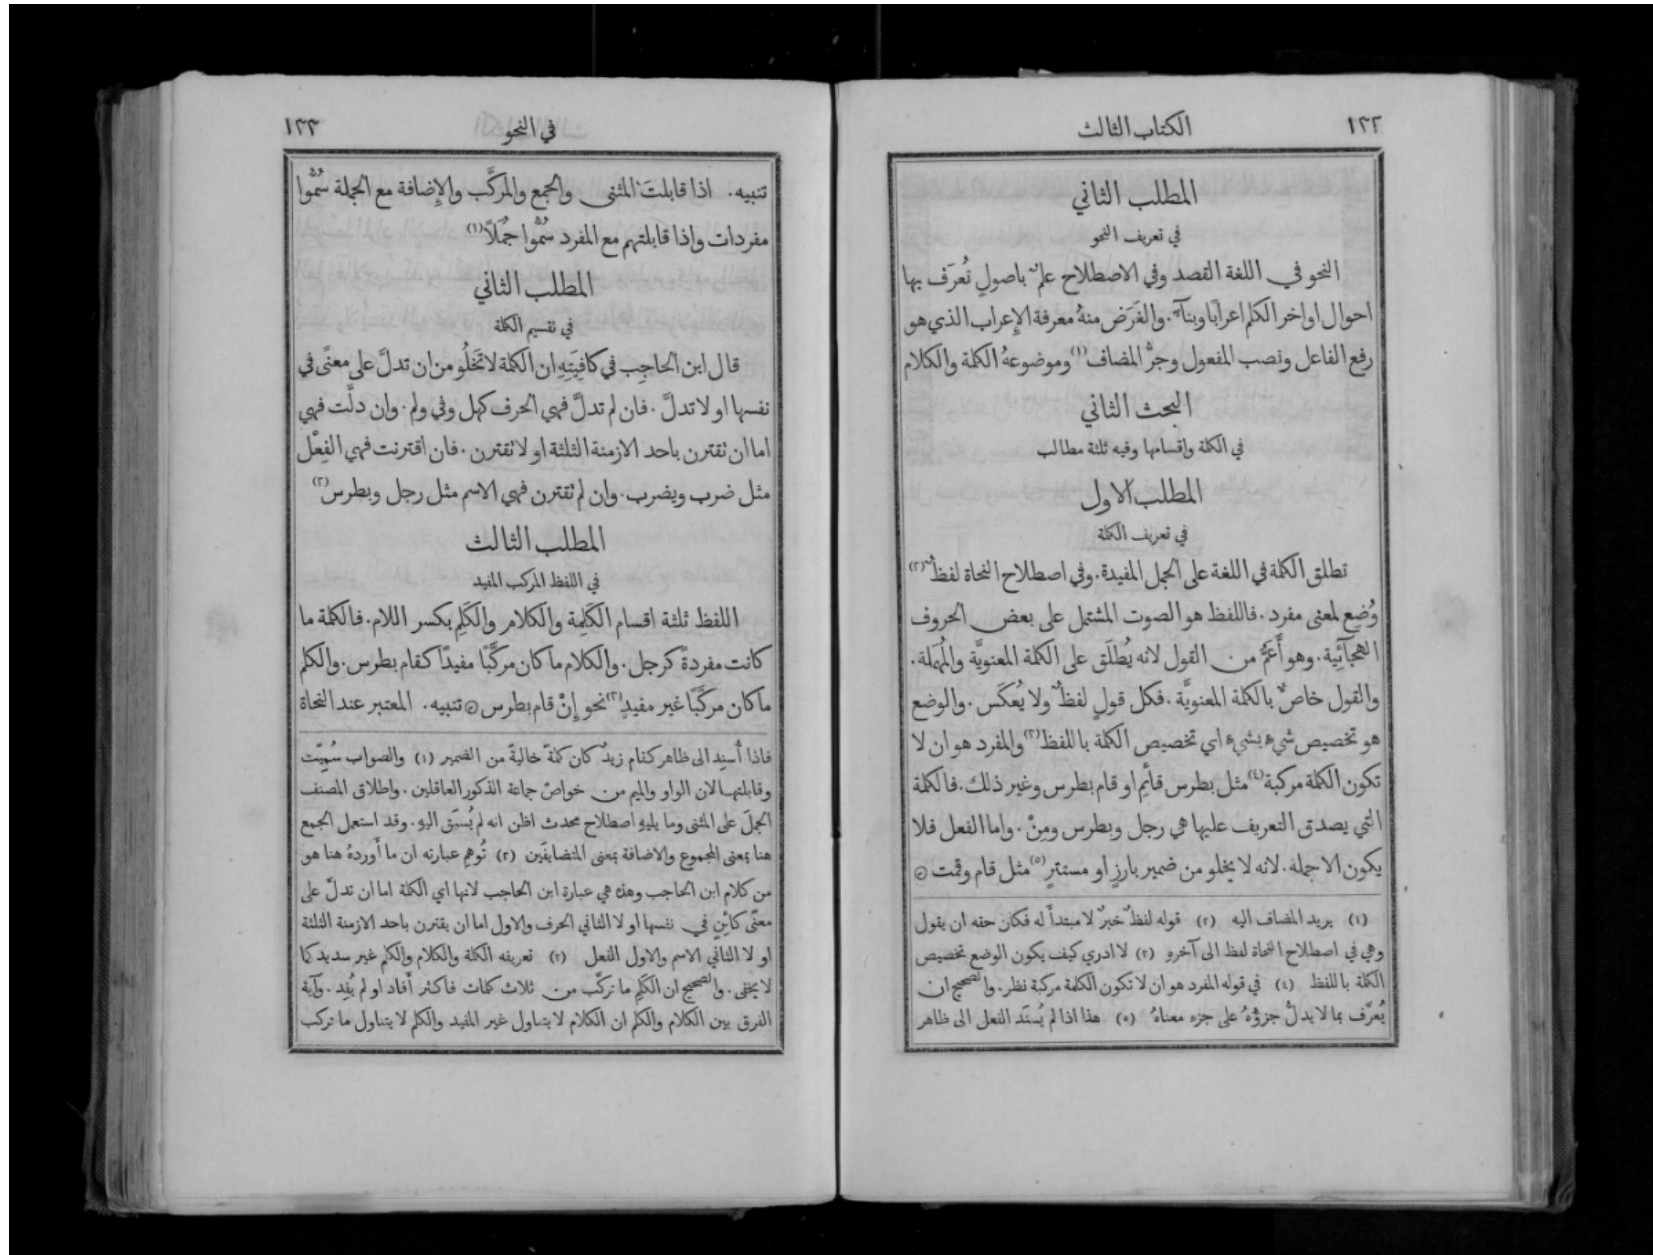 ١٢٢
الكتاب الثالث
المطلب الثاني
في تعريف النحو
النحو في اللغة القصد وفي الاصطلاح علمٌ باصولٍ تُعرَف بها
احوال اواخر الكلم اعرابًا وبنآءً. والغَرَض منهُ معرفة الإعراب الذي هو
رفع الفاعل ونصب المفعول وجرُّ المضاف (١) وموضوعهُ الكلمة والكلام
البحث الثاني
في الكلمة واقسامها وفيه ثلثة مطالب
المطلب الاول
في تعريف الكلمة
تطلق الكلمة في اللغة على الجمل المفيدة. وفي اصطلاح النحاة لفظٌ (٢)
وُضع لمعنى مفرد. فاللفظ هو الصوت المشتمل على بعض الحروف
الهجآئية. وهو أَعَمُّ من القول لانه يُطلَق على الكلمة المعنويَّة والمُهملة.
والقول خاصٌّ بالكلمة المعنويَّة. فكل قولٍ لفظٌ ولا يُعكَس. والوضع
هو تخصيص شيءٍ بشيءٍ اي تخصيص الكلمة باللفظ (٣) والمفرد هو ان لا
تكون الكلمة مركبة (٤) مثل بطرس قائِم او قام بطرس وغير ذلك. فالكلمة
التي يصدق التعريف عليها هي رجل وبطرس ومِنْ. واما الفعل فلا
يكون الا جملة. لانه لا يخلو من ضمير بارزٍ او مستترٍ (٥) مثل قام وقمت ۞
(١) يريد المضاف اليه (٢) قوله لفظٌ خبرٌ لا مبتدأَ له فكان حقه ان يقول
وهي في اصطلاح النحاة لفظ الى آخرهِ (٣) لا ادري كيف يكون الوضع تخصيص
الكلمة باللفظ (٤) في قوله المفرد هو ان لا تكون الكلمة مركبة نظر. والصحيح ان
يُعرَّف بما لا يدلُّ جزؤهُ على جزءِ معناهُ (٥) هذا اذا لم يُسنَد الفعل الى ظاهر
في النحو
١٢٣
تنبيه. اذا قابلتَ المثنى والجمع والمركَّب والإِضافة مع الجملة سُمُّوا
مفردات واذا قابلتهم مع المفرد سُمُّوا جُمَلًا (١)
المطلب الثاني
في تقسيم الكلمة
قال ابن الحاجِب في كافِيَتِهِ ان الكلمة لا تَخلُو من ان تدلَّ على معنًى في
نفسها او لا تدلَّ. فان لم تدلَّ فهي الحرف كهل وفي ولم. وان دلَّت فهي
اما ان تقترن باحد الازمنة الثلثة او لا تقترن. فان اقترنت فهي الفِعْل
مثل ضرب ويضرب. وان لم تقترن فهي الاسم مثل رجل وبطرس (٢)
المطلب الثالث
في اللفظ المركب المفيد
اللفظ ثلثة اقسام الكَلِمة والكلام والكَلِم بكسر اللام. فالكلمة ما
كانت مفردةً كرجل. والكلام ما كان مركَّبًا مفيدًا كقام بطرس. والكلم
ما كان مركَّبًا غير مفيدٍ (٣) نحو إِنْ قام بطرس ۞ تنبيه. المعتبر عند النحاة
فاذا أُسنِد الى ظاهر كقام زيدٌ كان كلمةً خاليةً من الضمير (١) والصواب سُمِّيَت
وقابلتها لان الواو والميم من خواصّ جماعة الذكور العاقلين. واطلاق المصنف
الجملَ على المثنى وما يليهِ اصطلاح محدث اظن انه لم يُسبَق اليهِ. وقد استعمل الجمع
هنا بمعنى المجموع والاضافة بمعنى المتضايفَين (٢) تُوهِم عبارته ان ما أَوردهُ هنا هو
من كلام ابن الحاجب وهذه هي عبارة ابن الحاجب لانها اي الكلمة اما ان تدلّ على
معنًى كائِنٍ في نفسها او لا الثاني الحرف والاول اما ان يقترن باحد الازمنة الثلثة
او لا الثاني الاسم والاول الفعل (٣) تعريفه الكلمة والكلام والكلم غير سديد كما
لا يخفى. والصحيح ان الكَلِم ما تركَّب من ثلاث كلمات فاكثر أَفاد او لم يُفِد. وآية
الفرق بين الكلام والكلم ان الكلام لا يتناول غير المفيد والكلم لا يتناول ما تركب